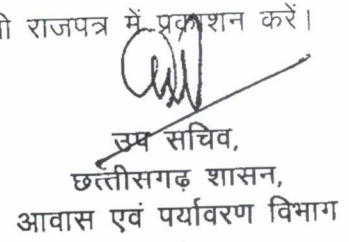 राजपत्र में प्रकाशन करें।
उप सचिव,
छत्तीसगढ़ शासन,
आवास एवं पर्यावरण विभाग